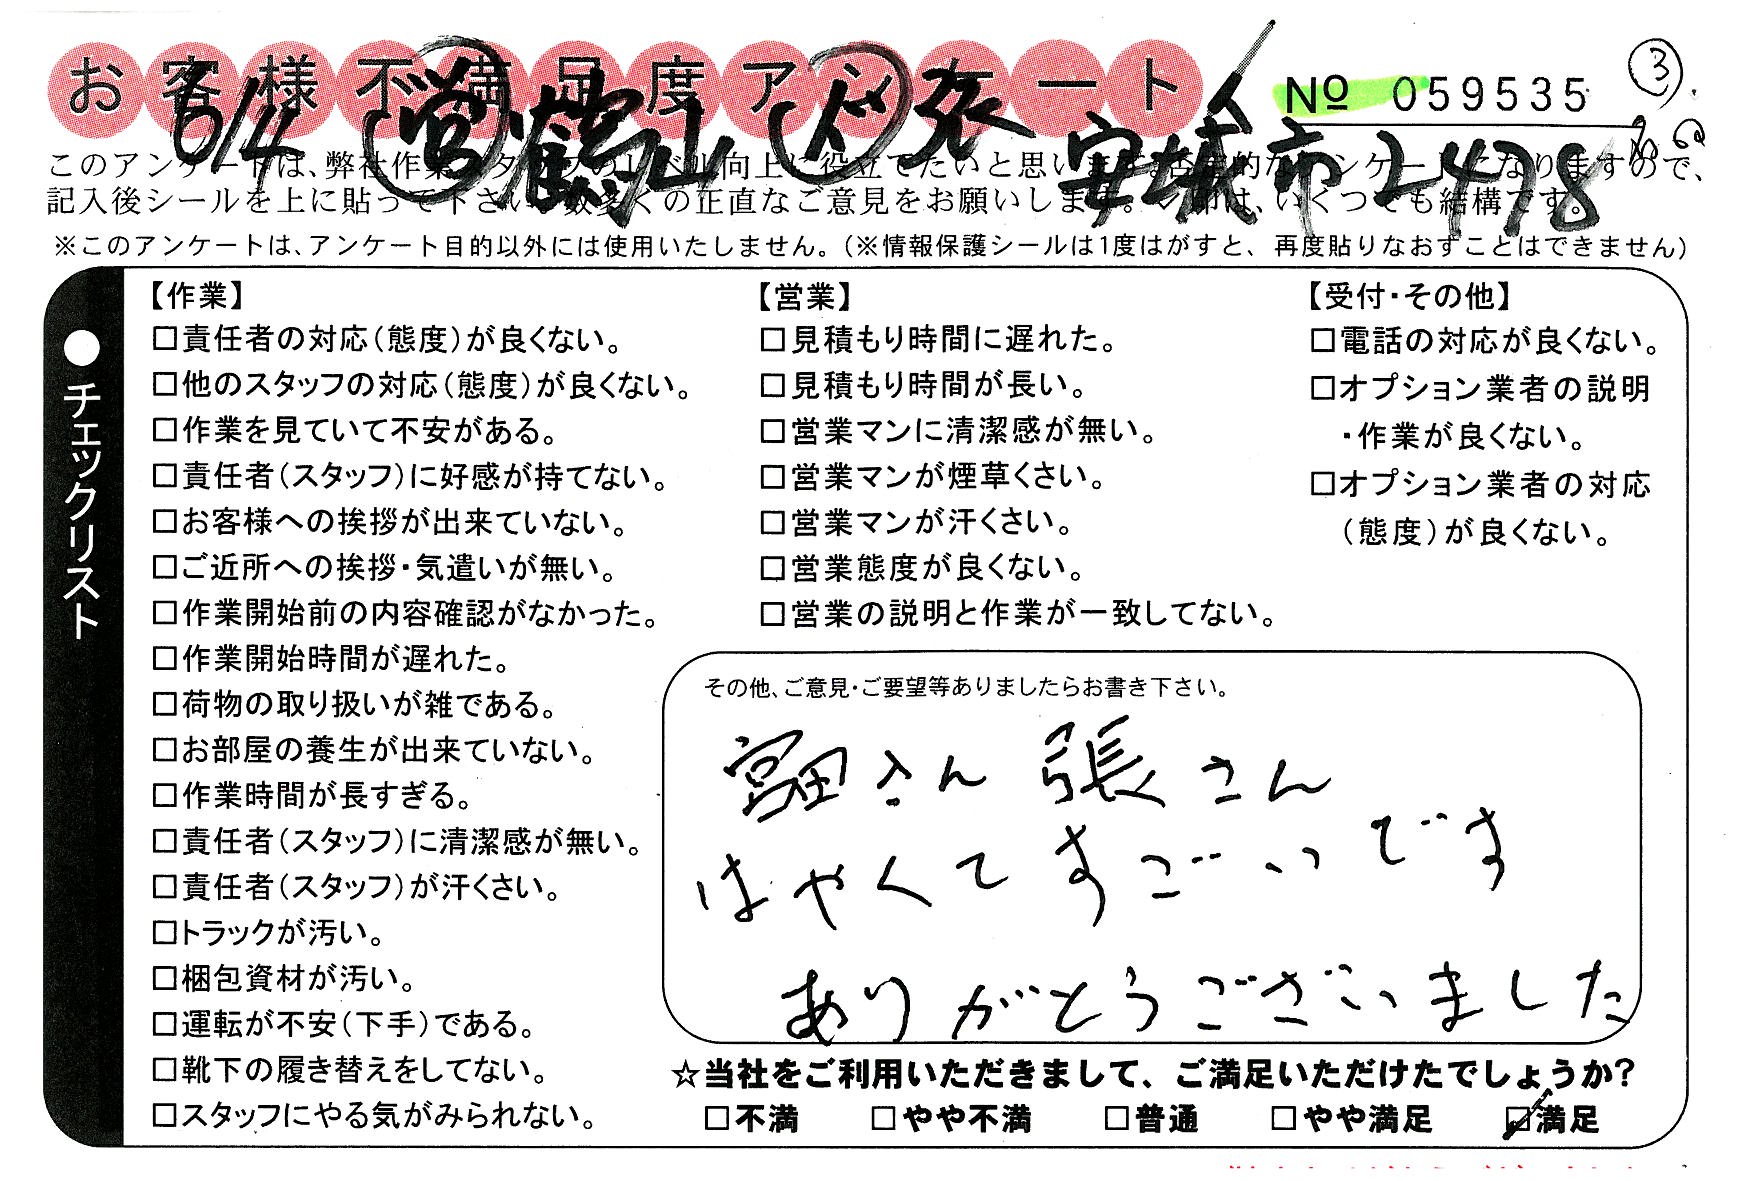 お客様不満足度アンケート
№ 059535
③
6/4 営 鶴山 ド 張 安城市 2478
このアンケートは、弊社作業スタッフのレベル向上に役立てたいと思います。否定的なアンケートになりますので、
記入後シールを上に貼って下さい。数多くの正直なご意見をお願いします。✓印は、いくつでも結構です。
※このアンケートは、アンケート目的以外には使用いたしません。(※情報保護シールは1度はがすと、再度貼りなおすことはできません)
●チェックリスト
【作業】
□責任者の対応(態度)が良くない。
□他のスタッフの対応(態度)が良くない。
□作業を見ていて不安がある。
□責任者(スタッフ)に好感が持てない。
□お客様への挨拶が出来ていない。
□ご近所への挨拶・気遣いが無い。
□作業開始前の内容確認がなかった。
□作業開始時間が遅れた。
□荷物の取り扱いが雑である。
□お部屋の養生が出来ていない。
□作業時間が長すぎる。
□責任者(スタッフ)に清潔感が無い。
□責任者(スタッフ)が汗くさい。
□トラックが汚い。
□梱包資材が汚い。
□運転が不安(下手)である。
□靴下の履き替えをしてない。
□スタッフにやる気がみられない。
【営業】
□見積もり時間に遅れた。
□見積もり時間が長い。
□営業マンに清潔感が無い。
□営業マンが煙草くさい。
□営業マンが汗くさい。
□営業態度が良くない。
□営業の説明と作業が一致してない。
【受付・その他】
□電話の対応が良くない。
□オプション業者の説明
・作業が良くない。
□オプション業者の対応
(態度)が良くない。
その他、ご意見・ご要望等ありましたらお書き下さい。
冨田さん 張さん
はやくてすごいです
ありがとうございました
☆当社をご利用いただきまして、ご満足いただけたでしょうか?
□不満 □やや不満 □普通 □やや満足 ☑満足